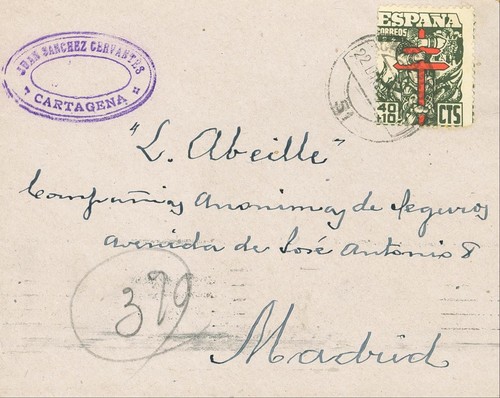 JUAN SANCHEZ CERVANTES
CARTAGENA
ESPAÑA
CORREOS
40
+10
CTS
22
51
"L. Abeille"
Compañias Anonimas de Seguros
Avenida de José Antonio 8
379
Madrid